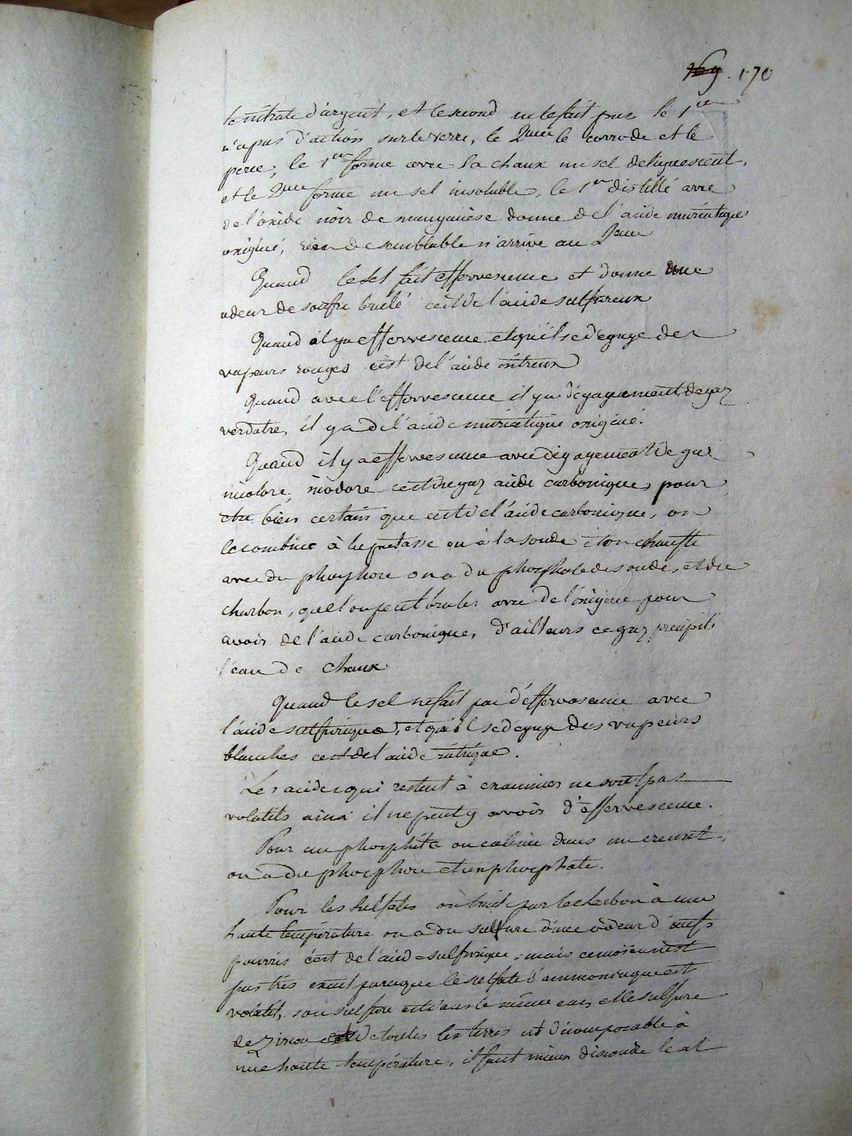 169. 170
le nitrate d'argent, et le second ne le fait pas le 1er
n'a pas d'action sur le verre, le 2eme le corrode et le
perce, le 1er forme avec la chaux un sel deliquescent,
et le 2eme forme un sel insoluble, le 1er distillé avec
de l'oxide noir de manganèse donne de l'acide muriatique
oxigéné, rien de semblable n'arrive au 2eme
Quand le sel fait effervescence et donne une
odeur de soufre brulé c'est de l'acide sulfureux
Quand il y a effervescence et qu'il se dégage des
vapeurs rouges c'est de l'acide nitreux
Quand avec l'effervescence il y a dégagement de gaz
verdatre, il y a de l'acide muriatique oxigéné.
Quand il y a effervescence avec dégagement de gaz
incolore, inodore c'est du gaz acide carbonique, pour
etre bien certain que c'est de l'acide carbonique, on
le combine à la potasse ou à la soude et on chauffe
avec du phosphore on a du phosphate de soude, et du
charbon, que l'on peut bruler avec de l'oxigène pour
avoir de l'acide carbonique, d'ailleurs ce gaz précipite
l'eau de chaux
Quand le sel ne fait pas d'effervescence avec
l'acide sulfurique, et qu'il se dégage des vapeurs
blanches c'est de l'acide nitrique.
Les acides qui restent à examiner ne sont pas
volatils ainsi il ne peut y avoir d'effervescence.
Pour un phosphite on calcine dans un creuset,
on a du phosphore et un phosphate.
Pour les sulfates on traite par le charbon à une
haute température on a du sulfure d'une odeur d'oeufs
pourris c'est de l'acide sulfurique, mais ce moien n'est
pas très exact parceque le sulfate d'ammoniaque est
volatil, son sulfure est dans le même cas, et le sulfure
de Zircon et de toutes les terres est décomposable à
une haute température, il faut mieux dissoudre le sel